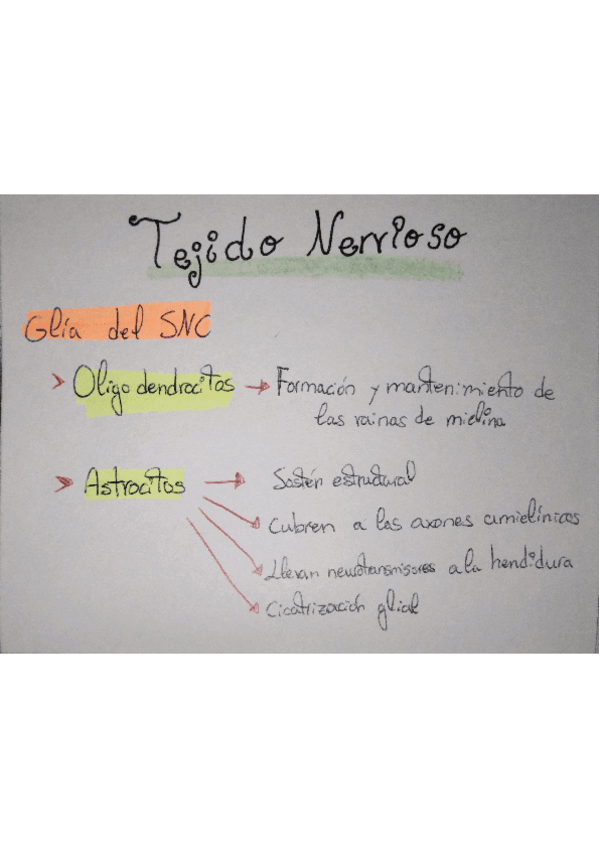 Tejido Nervioso
Glía del SNC
> Oligodendrocitos → Formación y mantenimiento de
las vainas de mielina
> Astrocitos → Sostén estructural
Cubren a los axones amielínicos
Llevan neurotransmisores a la hendidura
Cicatrización glial